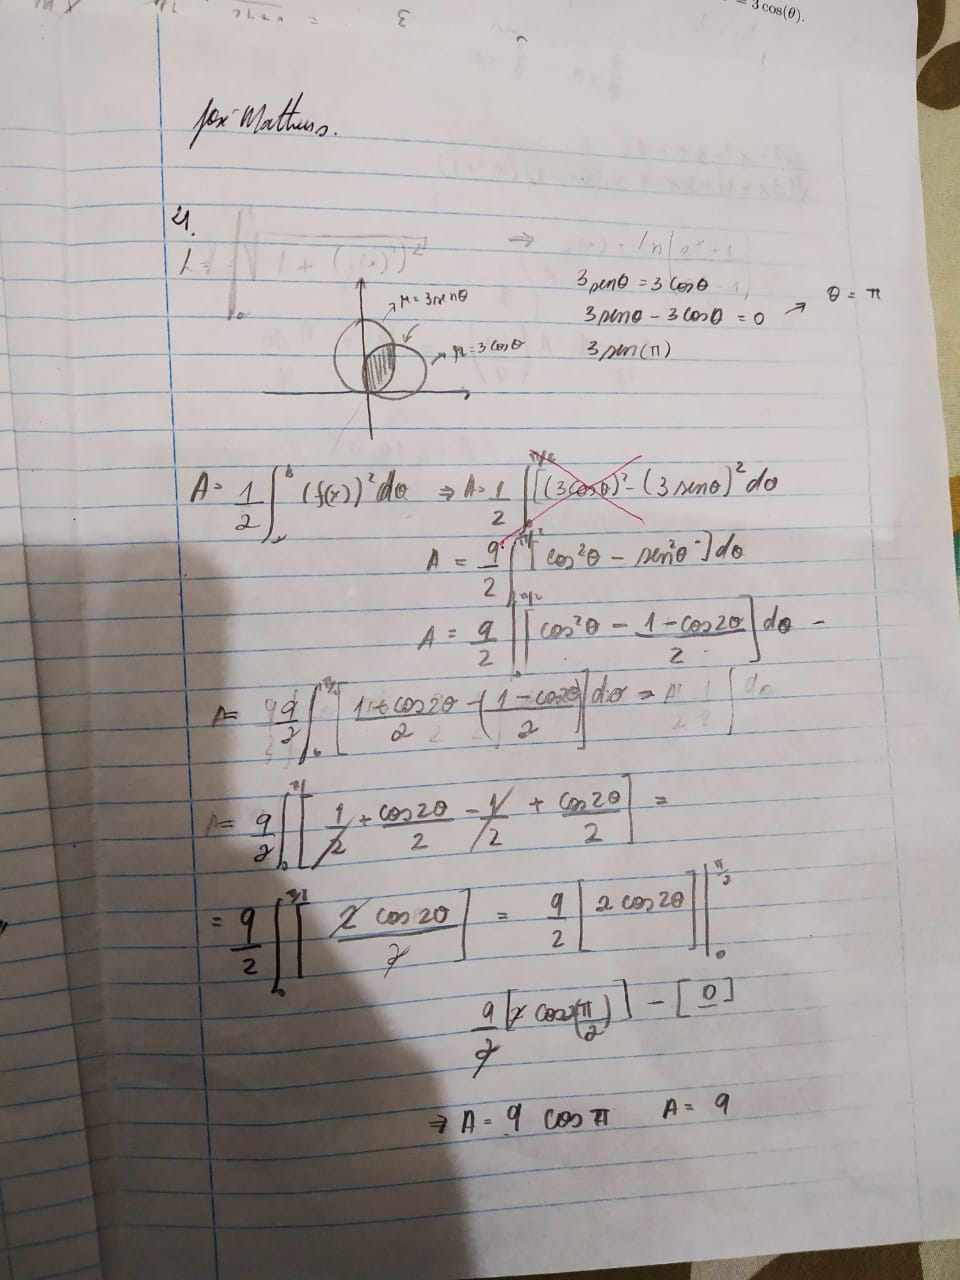 = 3 cos(θ).
José Matheus.
4.
3 senθ = 3 cosθ
3 senθ - 3 cosθ = 0 → θ = π
3 sen(π)
r = 3senθ
r = 3 cosθ
A = 1/2 ∫ (f(x))² dθ ⇒ A = 1/2 ∫ [(3cosθ)² - (3 senθ)² dθ
A = 9/2 ∫ [cos²θ - sen²θ] dθ
A = 9/2 ∫ [cos²θ - 1-cos2θ/2] dθ -
A = 9/2 ∫ [1+cos2θ/2 - (1-cos2θ/2)] dθ =
A = 9/2 ∫ [1/2 + cos2θ/2 - 1/2 + cos2θ/2] =
= 9/2 ∫ [2 cos2θ/2] = 9/2 [2 cos2θ] |₀^π/2
9/2 [2 cos2(π/2)] - [0]
⇒ A = 9 cos π A = 9